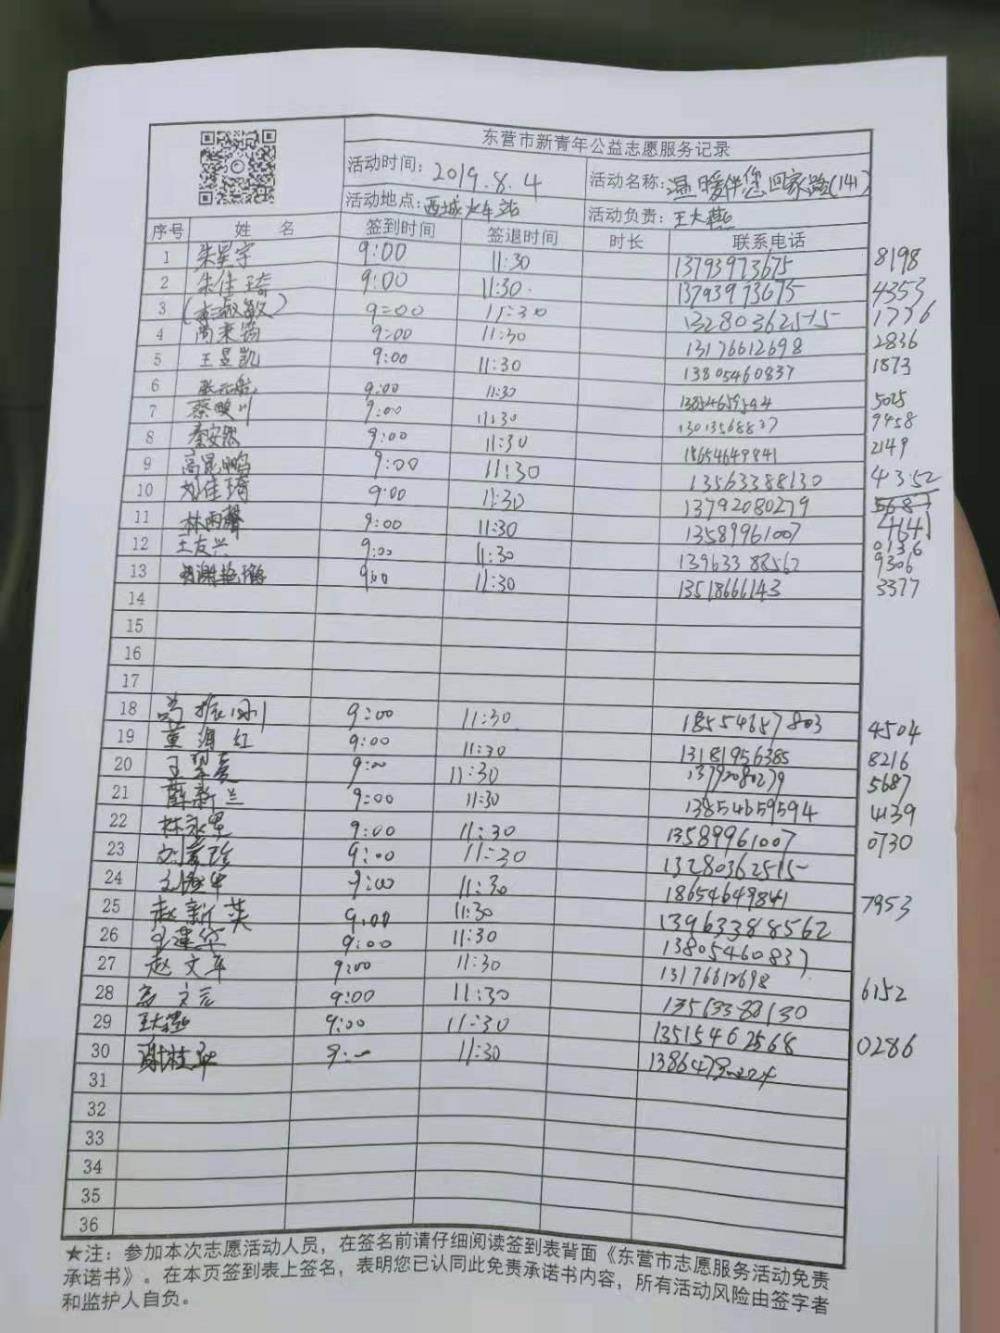 东营市新青年公益志愿服务记录
活动时间: 2019.8.4 活动名称: 温暖伴您回家路(141)
活动地点: 西城火车站 活动负责: 王大燕
序号 姓 名 签到时间 签退时间 时长 联系电话
1 朱星宇 9:00 11:30 13793973675 8198
2 朱佳琦 9:00 11:30 13793973675 4353
3 9:00 11:30 13280362515 1776
4 9:00 11:30 13176612698 2836
5 王昱凯 9:00 11:30 13805460837 1873
6 9:00 11:30 13854659594 5025
7 蔡畯川 9:00 11:30 13013568827 9458
8 秦安然 9:00 11:30 18654649841 2149
9 高昆鹏 9:00 11:30 13563388130 4352
10 刘佳琦 9:00 11:30 13792080279
11 林雨馨 9:00 11:30 13589961007
12 王友兴 9:00 11:30 13963388562 9306
13 9:00 11:30 13518666143 3377
14
15
16
17
18 9:00 11:30 18554657803 4504
19 董海红 9:00 11:30 13181956385 8216
20 11:30 13792080279 5687
21 薛新兰 9:00 11:30 13854659594 4139
22 9:00 11:30 13589961007 0730
23 9:00 11:30 13280362515
24 9:00 11:30 18654649841 7953
25 赵新英 9:00 11:30 13963388562
26 9:00 11:30 13805460837
27 赵文平 9:00 11:30 13176612698
28 9:00 11:30 13563388130 6152
29 王大燕 9:00 11:30 13515462568
30 谢桂 11:30 0286
31
32
33
34
35
36
★注: 参加本次志愿活动人员，在签名前请仔细阅读签到表背面《东营市志愿服务活动免责
承诺书》。在本页签到表上签名，表明您已认同此免责承诺书内容，所有活动风险由签字者
和监护人自负。